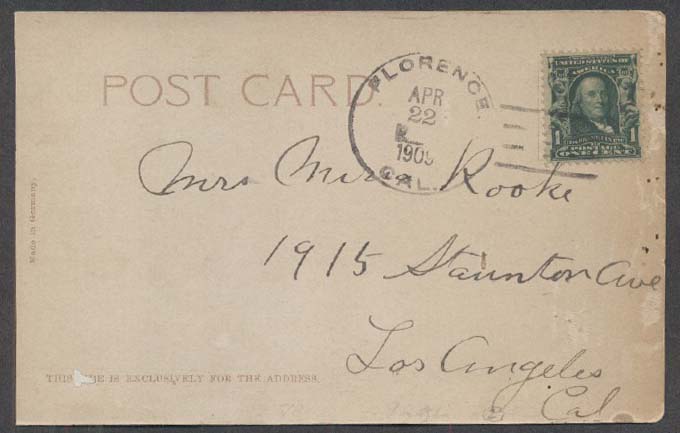 POST CARD.
FLORENCE.
APR
22
1905
CAL.
UNITED STATES OF
AMERICA
1 1
POSTAGE
ONE CENT
Mrs Mira Rooke
1915 Staunton Ave
Los Angeles
Cal
Made in Germany.
THIS IS EXCLUSIVELY FOR THE ADDRESS.